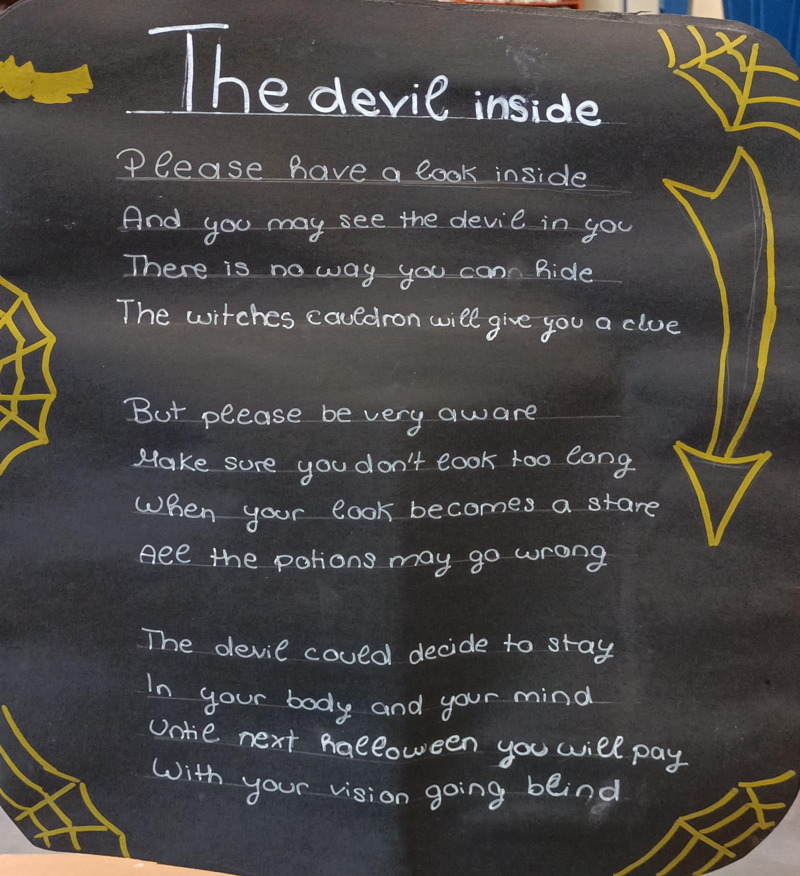 The devil inside
Please have a look inside
And you may see the devil in you
There is no way you can hide
The witches cauldron will give you a clue
But please be very aware
Make sure you don't look too long
When your look becomes a stare
All the potions may go wrong
The devil could decide to stay
In your body and your mind
Until next halloween you will pay
With your vision going blind